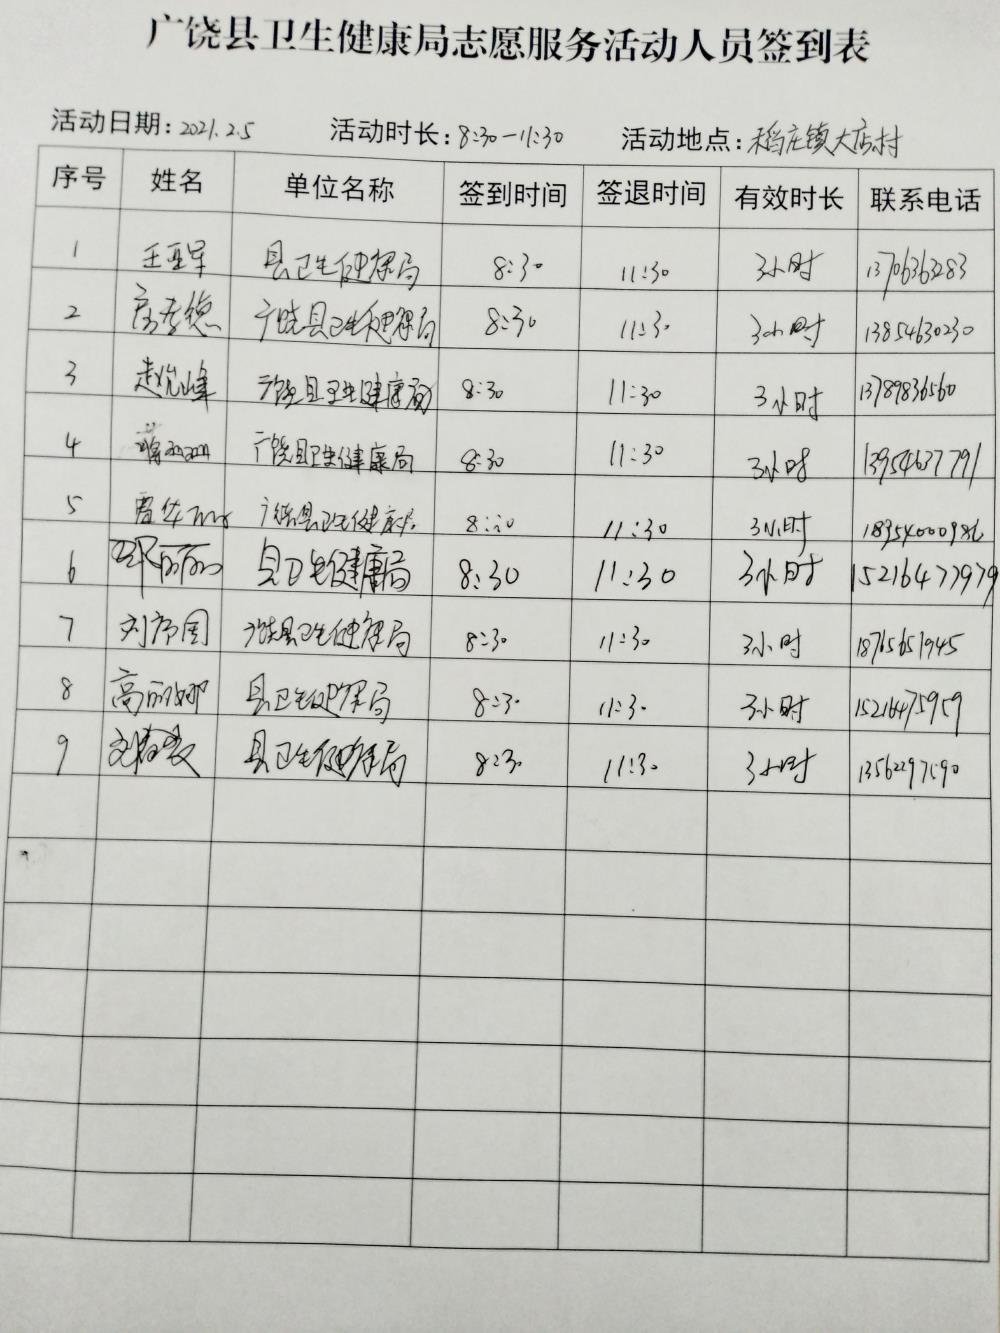 广饶县卫生健康局志愿服务活动人员签到表
活动日期: 2021.2.5 活动时长: 8:30-11:30 活动地点: 稻庄镇大店村
序号 姓名 单位名称 签到时间 签退时间 有效时长 联系电话
1 王亚军 县卫生健康局 8:30 11:30 3小时 13706363283
2 广饶县卫生健康局 8:30 11:30 3小时 13854630230
3 广饶县卫生健康局 8:30 11:30 3小时 13789836560
4 广饶县卫生健康局 8:30 11:30 3小时 13954637791
5 广饶县卫生健康局 8:30 11:30 3小时 18954000986
6 邓丽丽 县卫生健康局 8:30 11:30 3小时 15216477979
7 广饶县卫生健康局 8:30 11:30 3小时 18765651945
8 高丽娜 县卫生健康局 8:30 11:30 3小时 15216475959
9 县卫生健康局 8:30 11:30 3小时